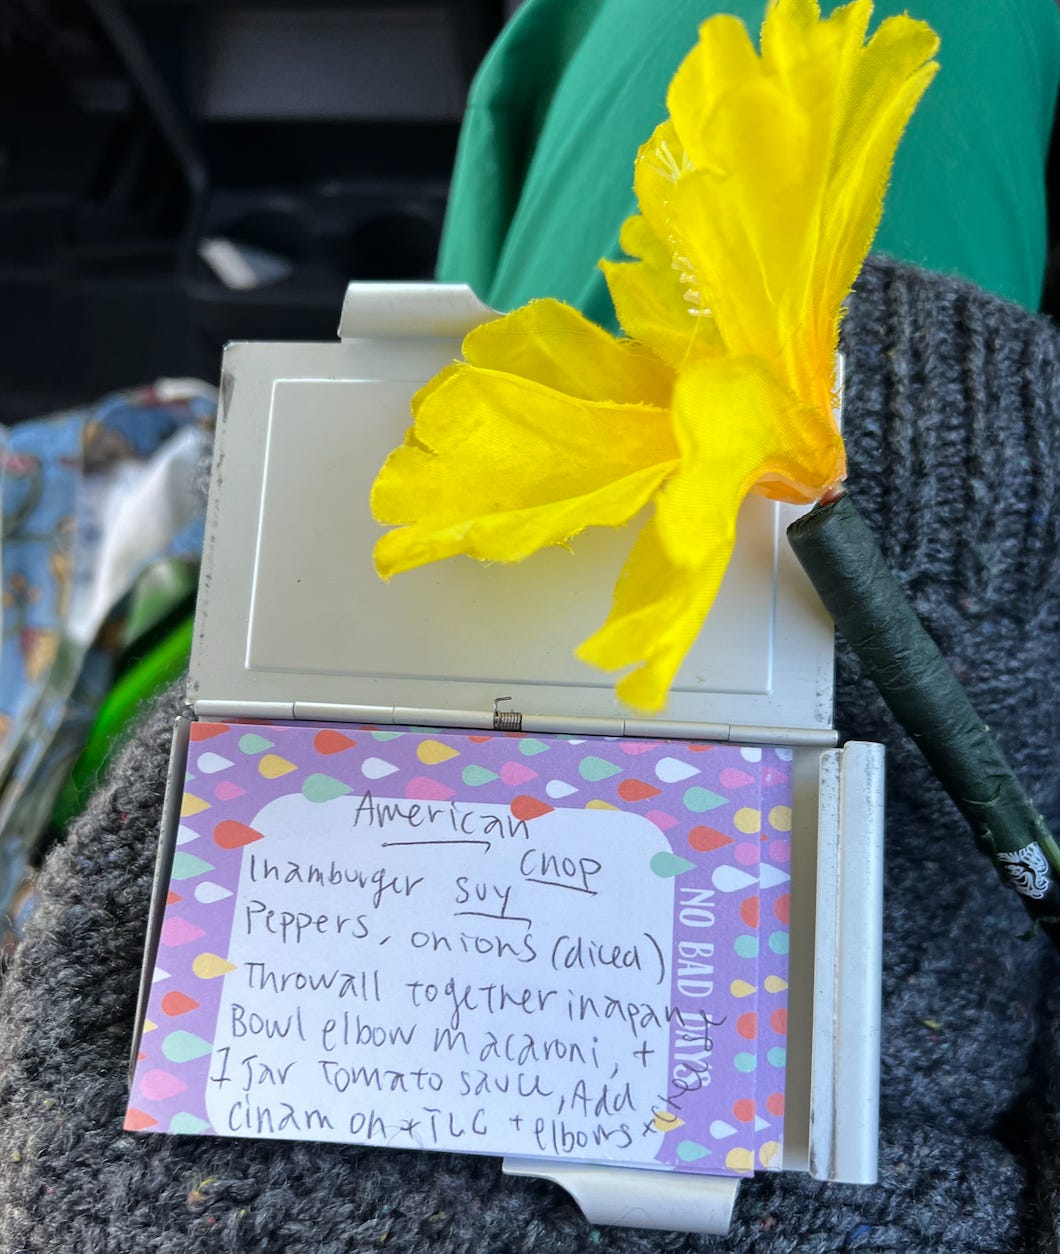 American
Chop
Inamburger Suy
Peppers, onions (diced)
Throw all together in a pan
Bowl elbow macaroni, +
1 Jar Tomato sauce, Add
cinam on + TLC + elbows
NO BAD DAYS